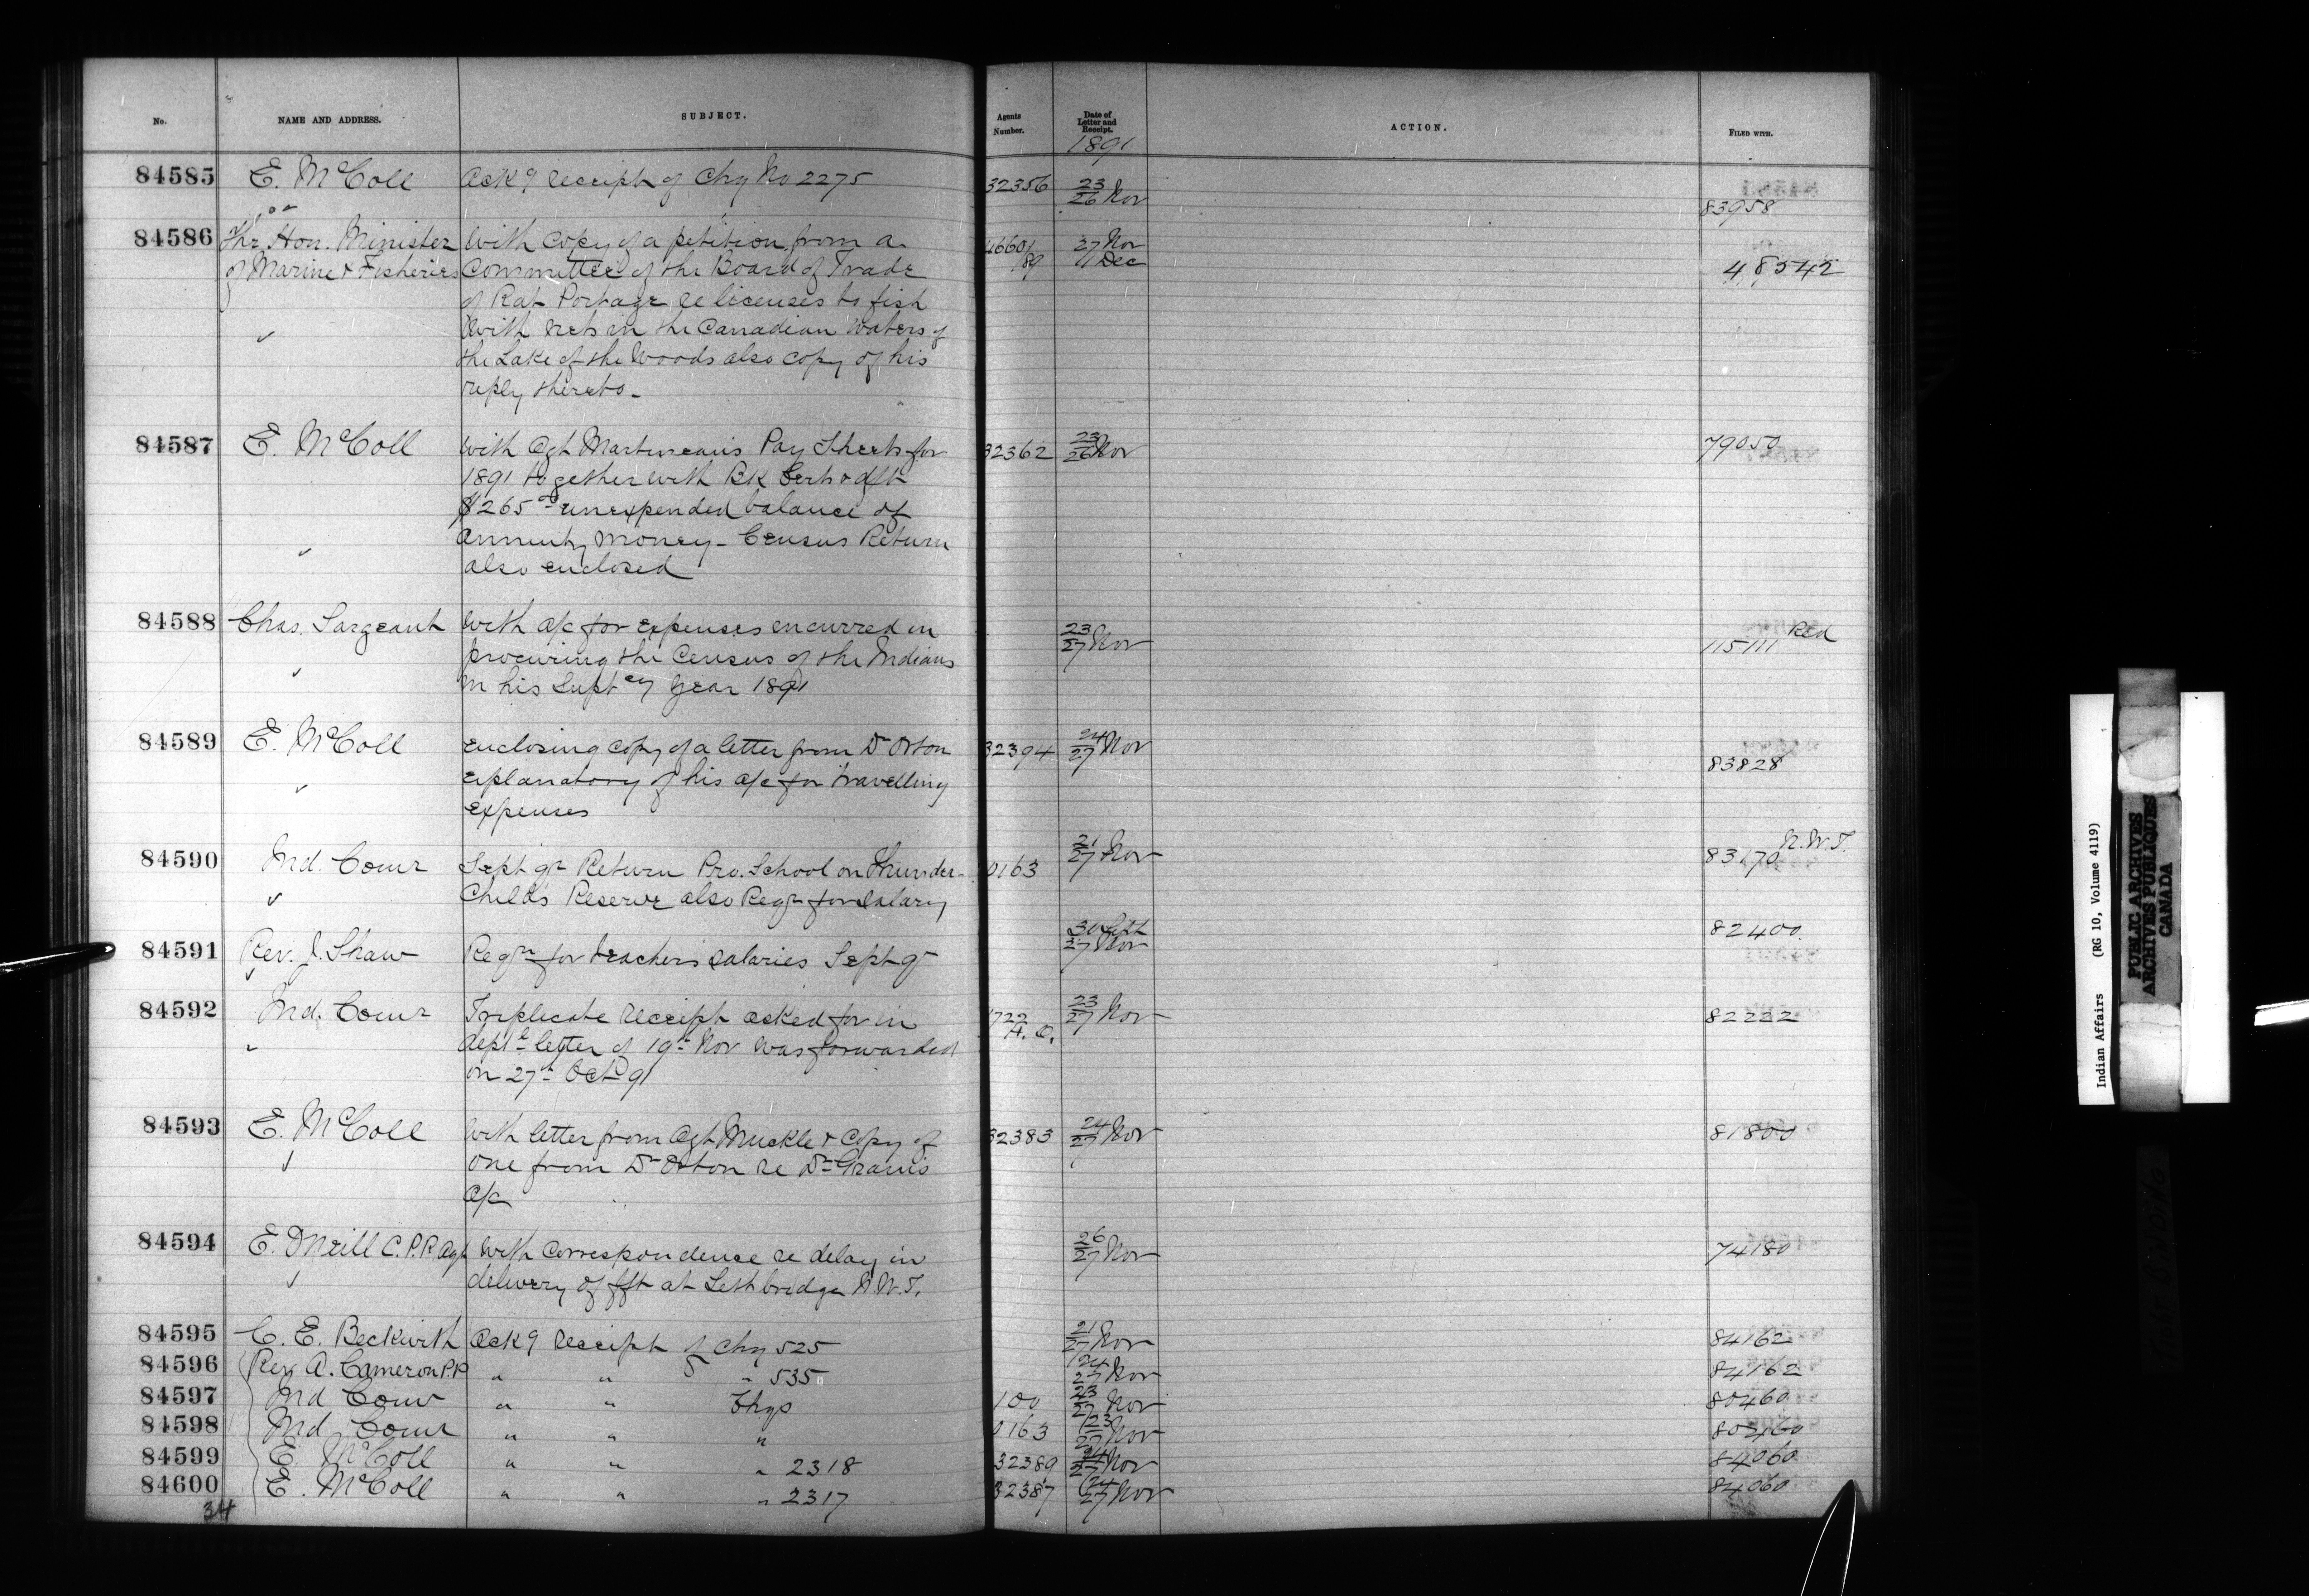 No. NAME AND ADDRESS. SUBJECT. Agents Number. Date of Letter and Receipt. ACTION. FILED WITH.
1891
84585 E. McColl Ackg receipt of Chq No 2275 32356 23/26 Nov 83958
84586 The Hon. Minister With copy of a petition from a 46601/89 27 Nov
of Marine & Fisheries Committee of the Board of Trade 1 Dec 48542
of Rat Portage re licenses to fish
with nets in the Canadian waters of
the Lake of the Woods also copy of his
reply thereto-
84587 E. McColl With Agt Martineau's Pay Sheets for 32362 23/26 Nov 79050
1891 together with Bk Cert of dft
$265 unexpended balance of
annuity money - Census Return
also enclosed
84588 Chas. Sargeant With a/c for expenses incurred in 23/27 Nov 115111 Red
procuring the Census of the Indians
in his Suptcy year 1891
84589 E. McColl Enclosing copy of a letter from Dr Orton 32394 24/27 Nov 83828
explanatory of his a/c for travelling
expenses
84590 Ind. Comr Sept qr Return Pro. School on Thunder- 0163 21/27 Nov 83170 N.W.T.
Child's Reserve also Reqn for salary
84591 Rev. J. Shaw Reqn for teachers salaries Sept qr 30 Sept/27 Nov 82400
84592 Ind. Comr Triplicate receipt asked for in 1722 H.O. 23/27 Nov 82222
deptl letter of 19th Nov was forwarded
on 27th Oct 91
84593 E. McColl With letter from Agt Muckle & copy of 32383 24/27 Nov 81800
one from Dr Orton re Dr Grain's
a/c
84594 E. O'Neill C.P.R Agt With correspondence re delay in 26/27 Nov 74180
delivery of fft at Lethbridge N.W.T.
84595 C. E. Beckwith Ackg receipt of Chq 525 21/27 Nov 84162
84596 Rev A. Cameron P.P. " " " 535 24/27 Nov 84162
84597 Ind Comr " " Chqs 100 23/27 Nov 80460
84598 Ind Comr " " " 0163 23/27 Nov 80460
84599 E. McColl " " " 2318 32389 24/27 Nov 84060
84600 E. McColl " " " 2317 32387 24/27 Nov 84060
34
Indian Affairs (RG 10, Volume 4119)
PUBLIC ARCHIVES
ARCHIVES PUBLIQUES
CANADA